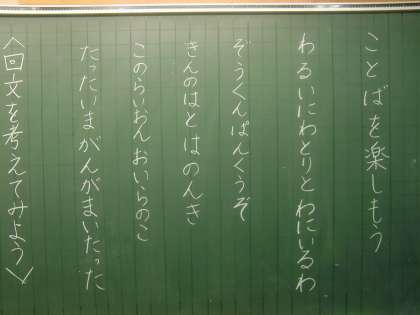 ことばを楽しもう
わるいにわとりと わにいるわ
ぞうくんぱんくうぞ
きんのはとはのんき
このらいおん おいらのこ
たったいまがんがまいたった
〈回文を考えてみよう〉